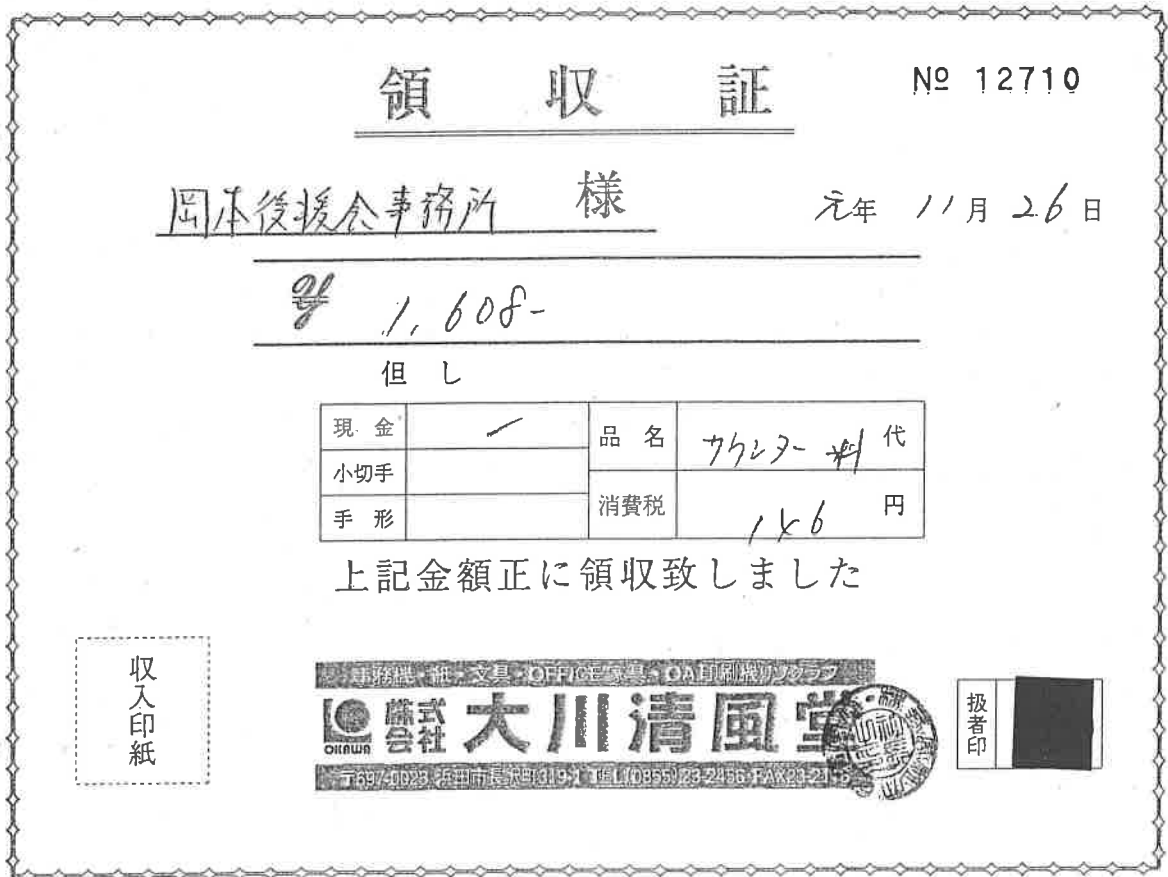 領収証
№ 12710
岡本後援会事務所 様
元年 11月 26日
¥ 1,608-
但し
現金 ✓ 品名 カウンター料 代
小切手
手形 消費税 146 円
上記金額正に領収致しました
収入印紙
事務機・紙・文具・OFFICE家具・OA印刷機リソグラフ
OKAWA 株式会社 大川清風堂
〒697-0023 浜田市長沢町319-1 TEL(0855)23-2456 FAX
扱者印